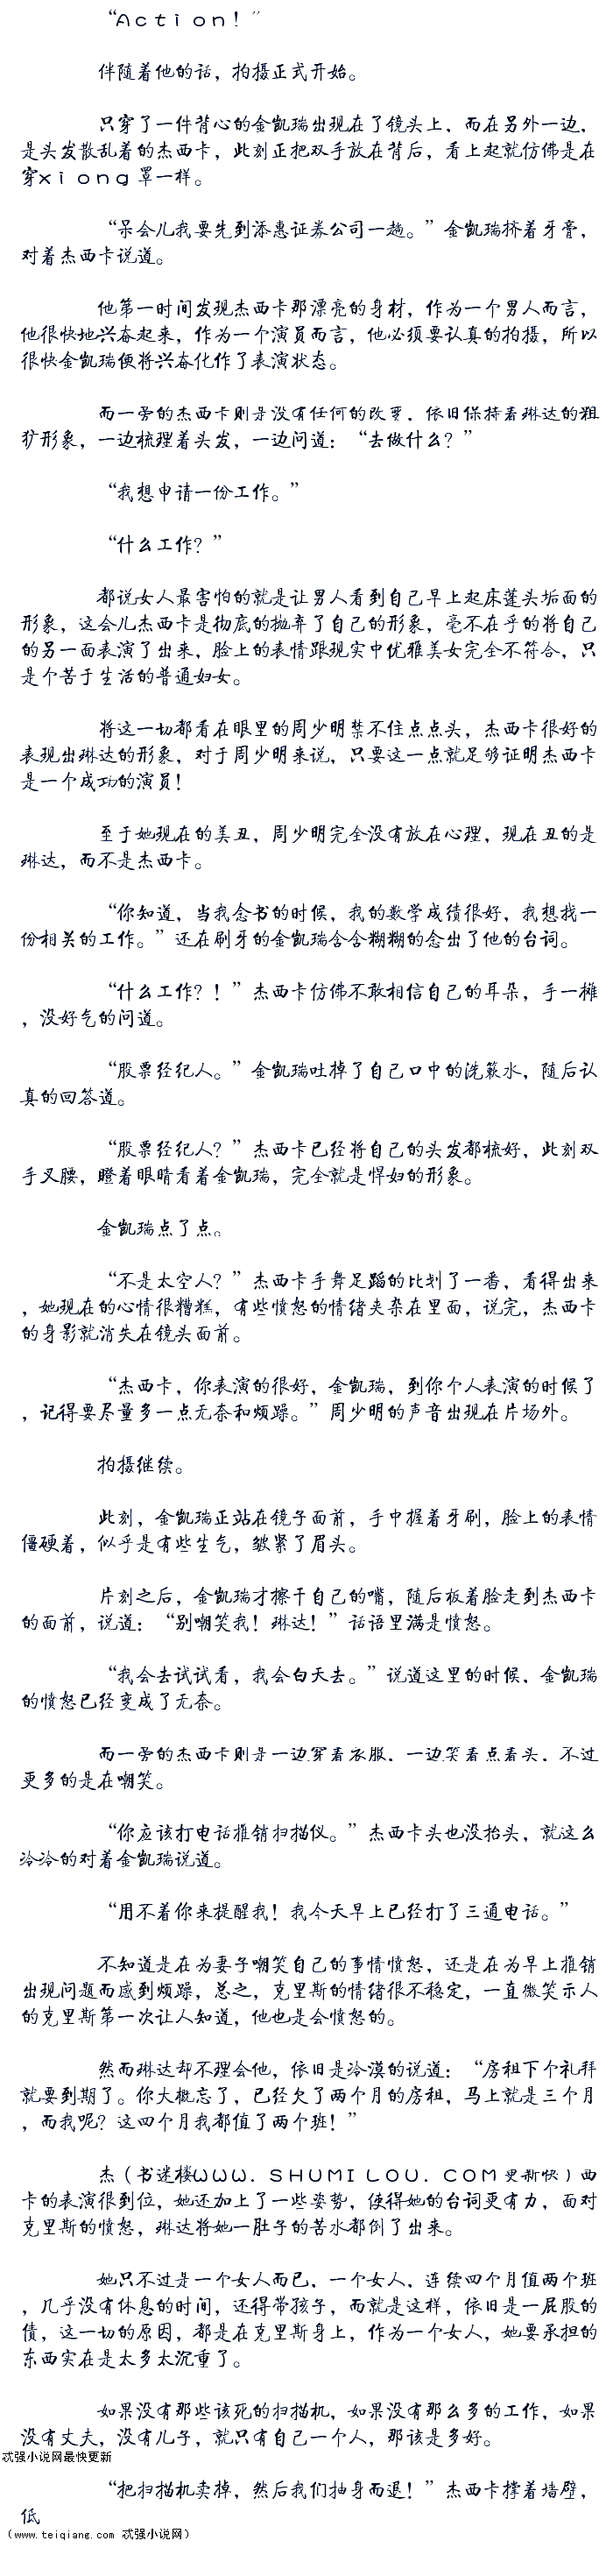 “Action！”
伴随着他的话，拍摄正式开始。
只穿了一件背心的金凯瑞出现在了镜头上，而在另外一边，
是头发散乱着的杰西卡，此刻正把双手放在背后，看上起就仿佛是在
穿xiong罩一样。
“呆会儿我要先到添惠证券公司一趟。”金凯瑞挤着牙膏，
对着杰西卡说道。
他第一时间发现杰西卡那漂亮的身材，作为一个男人而言，
他很快地兴奋起来，作为一个演员而言，他必须要认真的拍摄，所以
很快金凯瑞便将兴奋化作了表演状态。
而一旁的杰西卡则是没有任何的改变，依旧保持着琳达的粗
犷形象，一边梳理着头发，一边问道：“去做什么？”
“我想申请一份工作。”
“什么工作？”
都说女人最害怕的就是让男人看到自己早上起床蓬头垢面的
形象，这会儿杰西卡是彻底的抛弃了自己的形象，毫不在乎的将自己
的另一面表演了出来，脸上的表情跟现实中优雅美女完全不符合，只
是个苦于生活的普通妇女。
将这一切都看在眼里的周少明禁不住点点头，杰西卡很好的
表现出琳达的形象，对于周少明来说，只要这一点就足够证明杰西卡
是一个成功的演员！
至于她现在的美丑，周少明完全没有放在心理，现在丑的是
琳达，而不是杰西卡。
“你知道，当我念书的时候，我的数学成绩很好，我想找一
份相关的工作。”还在刷牙的金凯瑞含含糊糊的念出了他的台词。
“什么工作？！”杰西卡仿佛不敢相信自己的耳朵，手一摊
，没好气的问道。
“股票经纪人。”金凯瑞吐掉了自己口中的洗漱水，随后认
真的回答道。
“股票经纪人？”杰西卡已经将自己的头发都梳好，此刻双
手叉腰，瞪着眼睛看着金凯瑞，完全就是悍妇的形象。
金凯瑞点了点。
“不是太空人？”杰西卡手舞足蹈的比划了一番，看得出来
，她现在的心情很糟糕，有些愤怒的情绪夹杂在里面，说完，杰西卡
的身影就消失在镜头面前。
“杰西卡，你表演的很好，金凯瑞，到你个人表演的时候了
，记得要尽量多一点无奈和烦躁。”周少明的声音出现在片场外。
拍摄继续。
此刻，金凯瑞正站在镜子面前，手中握着牙刷，脸上的表情
僵硬着，似乎是有些生气，皱紧了眉头。
片刻之后，金凯瑞才擦干自己的嘴，随后板着脸走到杰西卡
的面前，说道：“别嘲笑我！琳达！”话语里满是愤怒。
“我会去试试看，我会白天去。”说道这里的时候，金凯瑞
的愤怒已经变成了无奈。
而一旁的杰西卡则是一边穿着衣服，一边笑着点着头，不过
更多的是在嘲笑。
“你应该打电话推销扫描仪。”杰西卡头也没抬头，就这么
冷冷的对着金凯瑞说道。
“用不着你来提醒我！我今天早上已经打了三通电话。”
不知道是在为妻子嘲笑自己的事情愤怒，还是在为早上推销
出现问题而感到烦躁，总之，克里斯的情绪很不稳定，一直微笑示人
的克里斯第一次让人知道，他也是会愤怒的。
然而琳达却不理会他，依旧是冷漠的说道：“房租下个礼拜
就要到期了。你大概忘了，已经欠了两个月的房租，马上就是三个月
，而我呢？这四个月我都值了两个班！”
杰（书迷楼WWW．SHUMILOU．COM更新快）西
卡的表演很到位，她还加上了一些姿势，使得她的台词更有力，面对
克里斯的愤怒，琳达将她一肚子的苦水都倒了出来。
她只不过是一个女人而已，一个女人，连续四个月值两个班
，几乎没有休息的时间，还得带孩子，而就是这样，依旧是一屁股的
债，这一切的原因，都是在克里斯身上，作为一个女人，她要承担的
东西实在是太多太沉重了。
如果没有那些该死的扫描机，如果没有那么多的工作，如果
没有丈夫，没有儿子，就只有自己一个人，那该是多好。
忒强小说网最快更新
“把扫描机卖掉，然后我们抽身而退！”杰西卡撑着墙壁，
低
（www.teiqiang.com 忒强小说网）